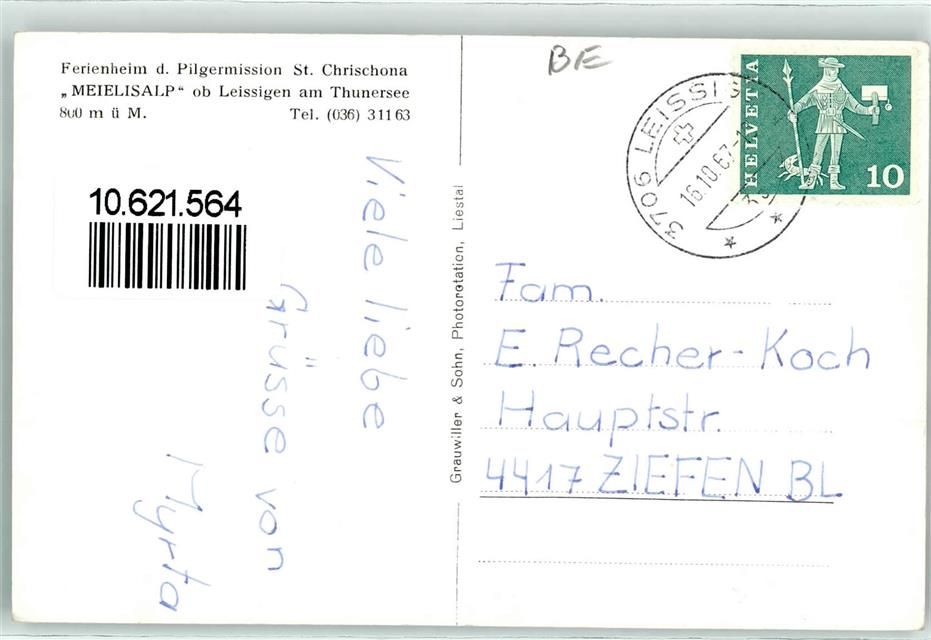 Ferienheim d. Pilgermission St. Chrischona
„MEIELISALP" ob Leissigen am Thunersee
800 m ü M. Tel. (036) 3 11 63
10.621.564
Viele liebe
Grüsse von
Myrta
Grauwiller & Sohn, Photorotation, Liestal
BE
3706 LEISSIG
16.10.67
HELVETIA
10
Fam.
E. Recher-Koch
Hauptstr.
4417 ZIEFEN BL